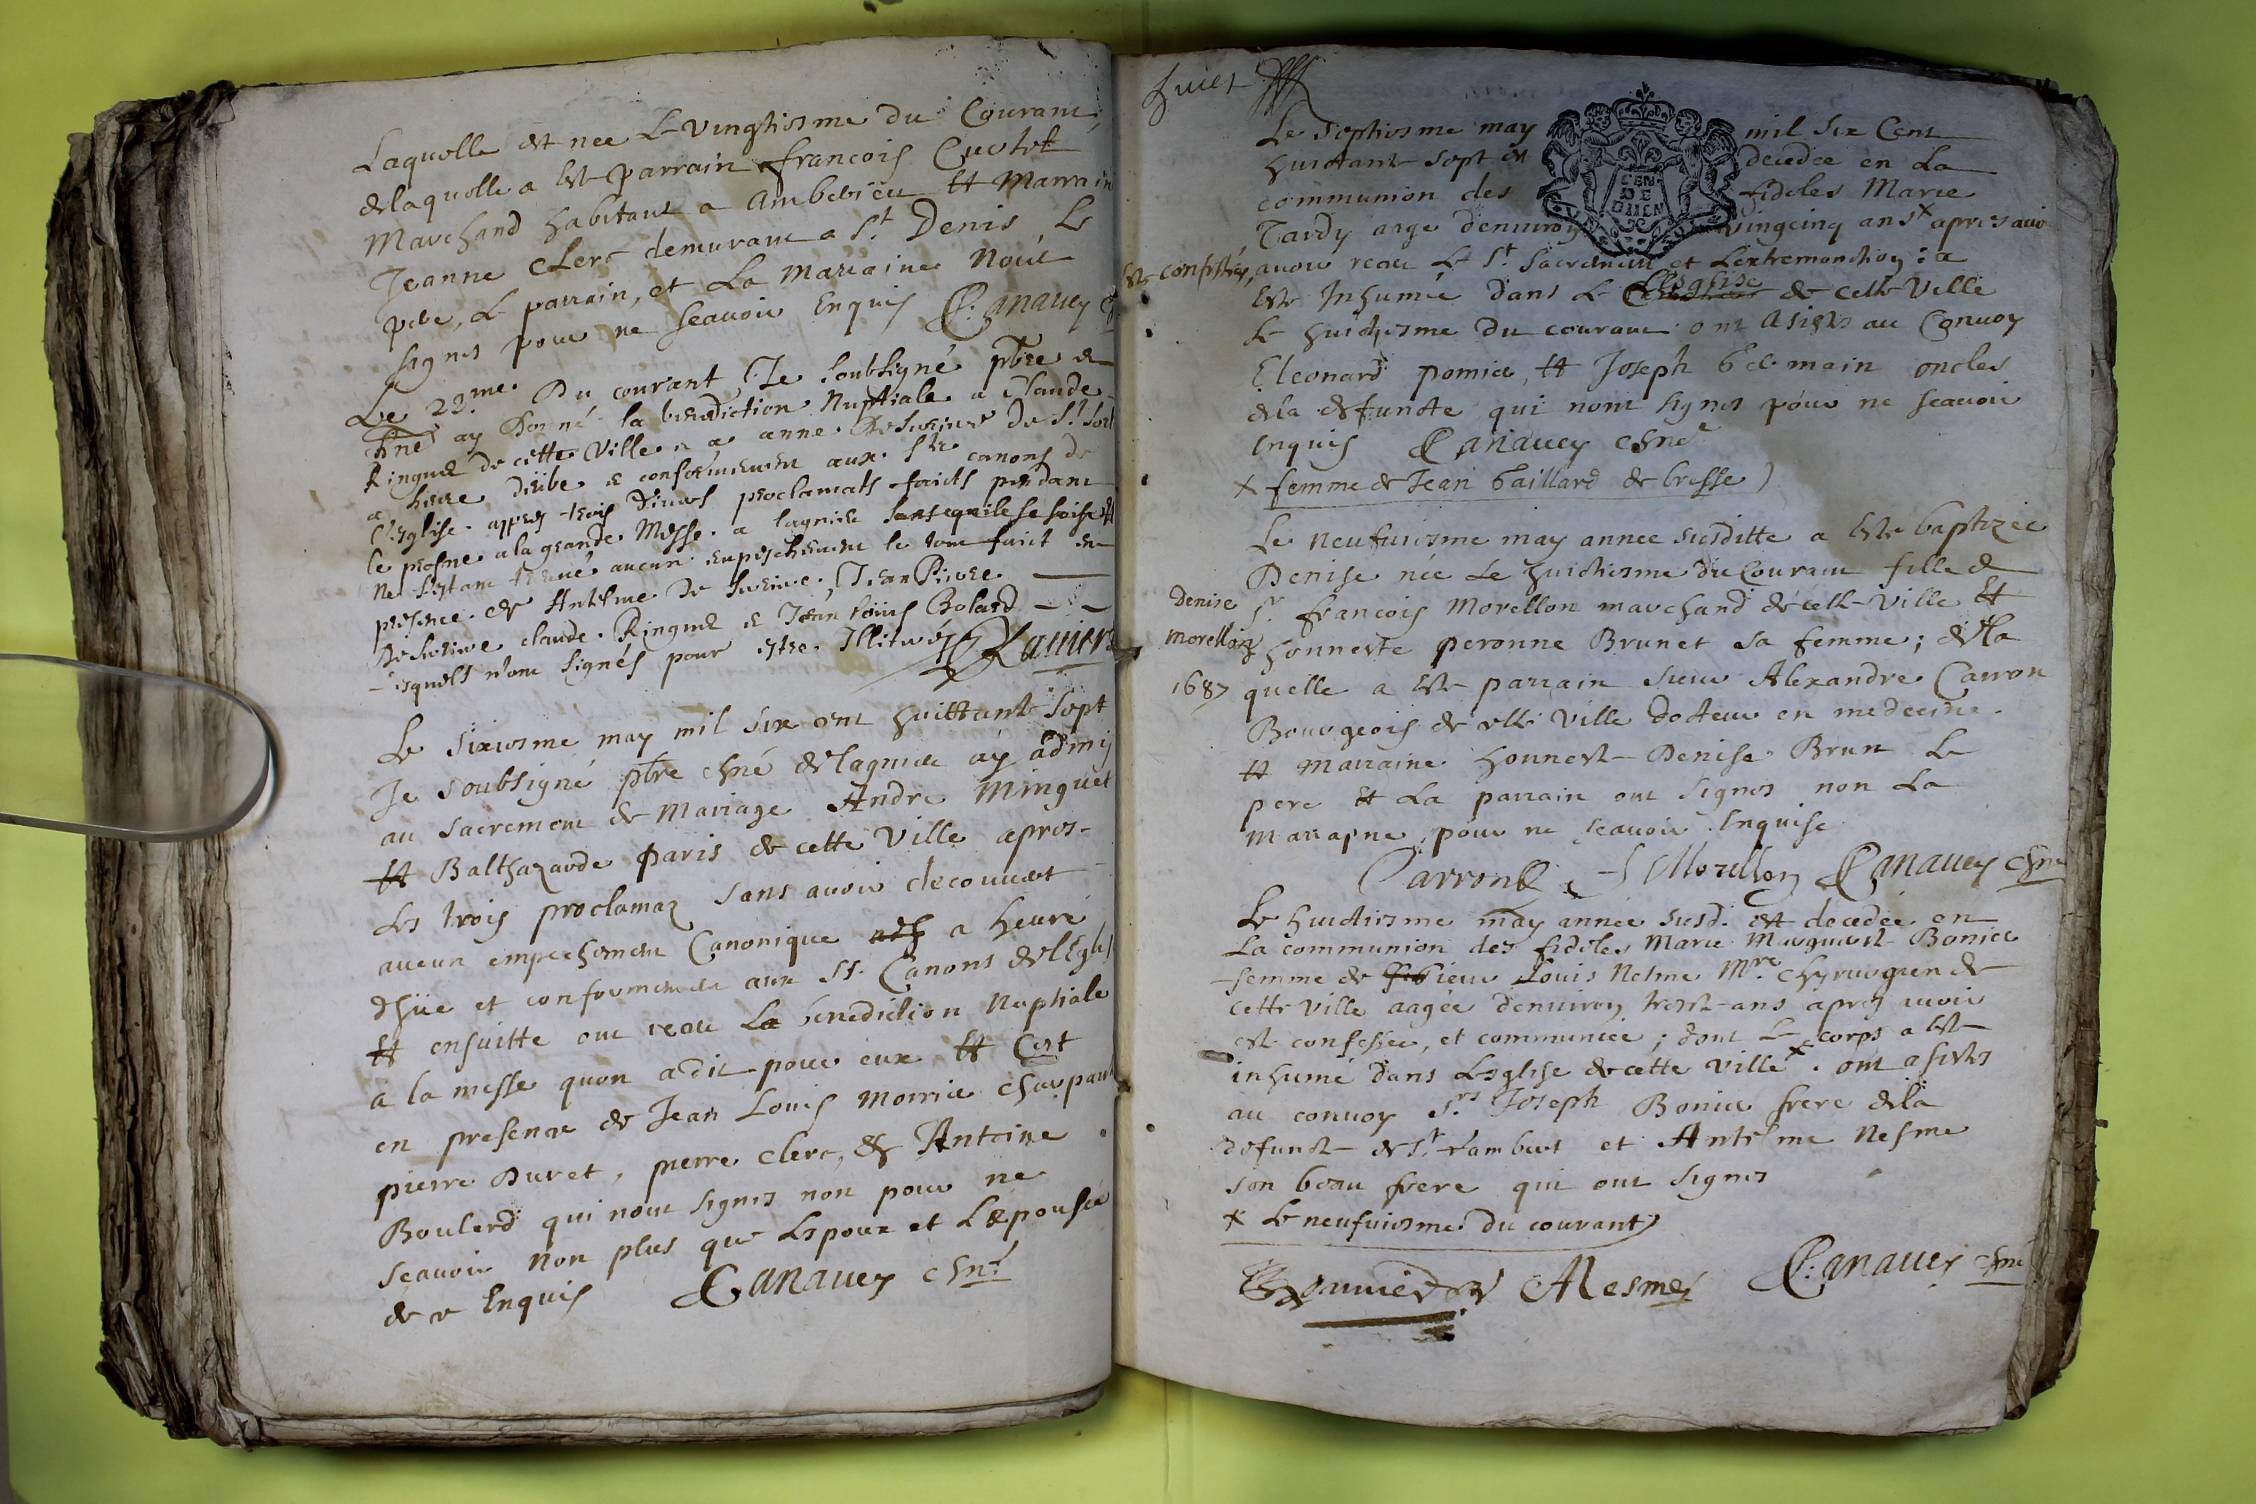 Laquelle est nee Le vingtiesme du Courant,
de laquelle a este parrain francois Cuvtet
Marchand habitant a Amberieu et Marraine
Jeanne Clerc demurant a St Denis, Le
pere, Le parrain, et La Maraine Nont
signes pour ne scavoir Enquis C. Canavey
Le 22me Du courant, Je soubsigné pbre et
chne ay Donné la benediction Nuptiale a Claude
Ringuet de cette Ville et a anne De Surine de St Sor
a heure düe et conformement aux Sts canons de
l'Eglise appres trois Divers proclamats faicts pendant
le prosne a la grande Messe a lagnieu sans quil se soise
ne s'estant treuvé aucun empeschement le tout faict en
presence de Antelme De Surine, Jean Pierre
De Surine claude Ringuet et Jean Louis Bolard
lesquels n'ont signés pour estre Illitérés Laviere
Le sixiesme may mil six cent huittante sept
Je soubsigné pbre chné de lagnieu ay admis
au sacrement de Mariage Andre Minguet
et Balthazarde Paris de cette Ville apres
Les trois proclamaz sans avoir decouvert
aucun empechement Canonique a heure
düe et conformement aux Sts Canons de l'Eglise
et ensuitte ont receu La benediction Nuptiale
a la messe quon a dit pour eux et Cest
en presence de Jean Louis Monnié charpant
pierre Duret, pierre clerc, et Antoine
Boulerd qui nont signes non pour ne
scavoir Non plus que L'epoux et L'epousée
de ce Enquis Canavey chne
huict
Le septiesme may mil six Cent
huictante sept est decedee en La
communion des fideles Marie
Tardy aage denviron vingcinq ans x apres avoir
este confessée, avoir receu Le St Sacrement et Lextremonction: a
este Inhumée dans L Eglise de cette Ville
Le huictiesme Du courant ont asistes au Convoy
Eleonard pomier, et Joseph Germain oncles
de la defuncte qui nont signes pour ne scavoir
Enquis Canavey chne
x femme de Jean Gaillard de bresse)
Le Neufviesme may annee susditte a este baptizée
Denise née Le huictiesme du Courant fille de
Denise
Sr francois Morellon marchand de cette Ville et
Morellon
honneste peronne Brunet sa femme; de la
1687
quelle a este parrain Sieur Alexandre Carron
Bourgeois de cette Ville docteur en medecine
et marraine honneste Denise Brun Le
pere et La parrain ont signes non La
Marrayne, pour ne scavoir Enquise
Carron Morellon Canavey chne
Le huictiesme may année susd. est decedee en
La communion des fideles Marie Marguerite Bonier
femme de sieur Louis Nesme Mre chyrurgien de
cette Ville aagée denviron trente ans apres avoir
este confessée, et communiée; dont Le corps a este
inhumé dans L'eglise de cette Ville x. ont asistes
au convoy Srs Joseph Bonier frere de la
defuncte de St Rambert et Antelme Nesme
son beau frere qui ont signes
x Le neufviesme du courant)
Bonnier Nesme C. Canavey chne